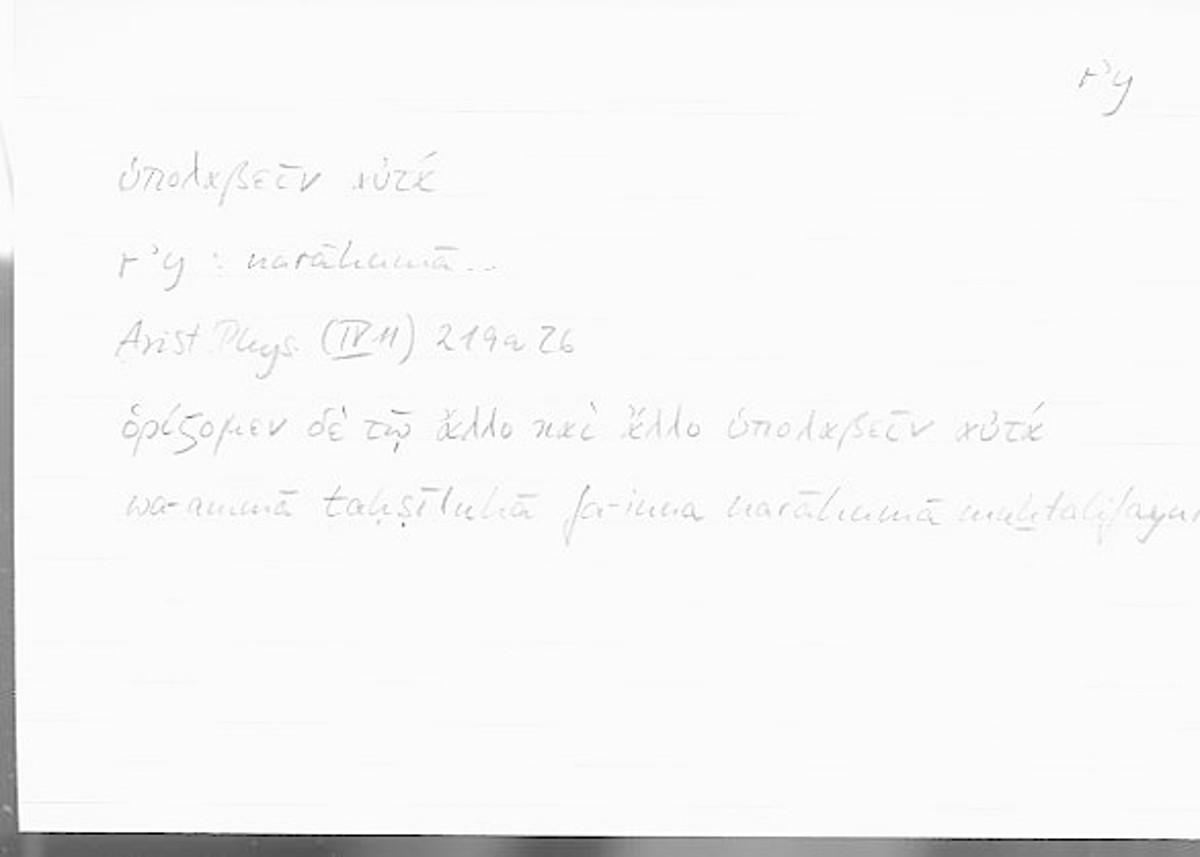 rʾy
ὑπολαβεῖν αὐτά
rʾy : narāhumā..
Arist. Phys. (IV 11) 219a 26
ὁρίζομεν δὲ τῷ ἄλλο καὶ ἄλλο ὑπολαβεῖν αὐτά
wa-ammā taḥṣīluhā fa-inna narāhumā